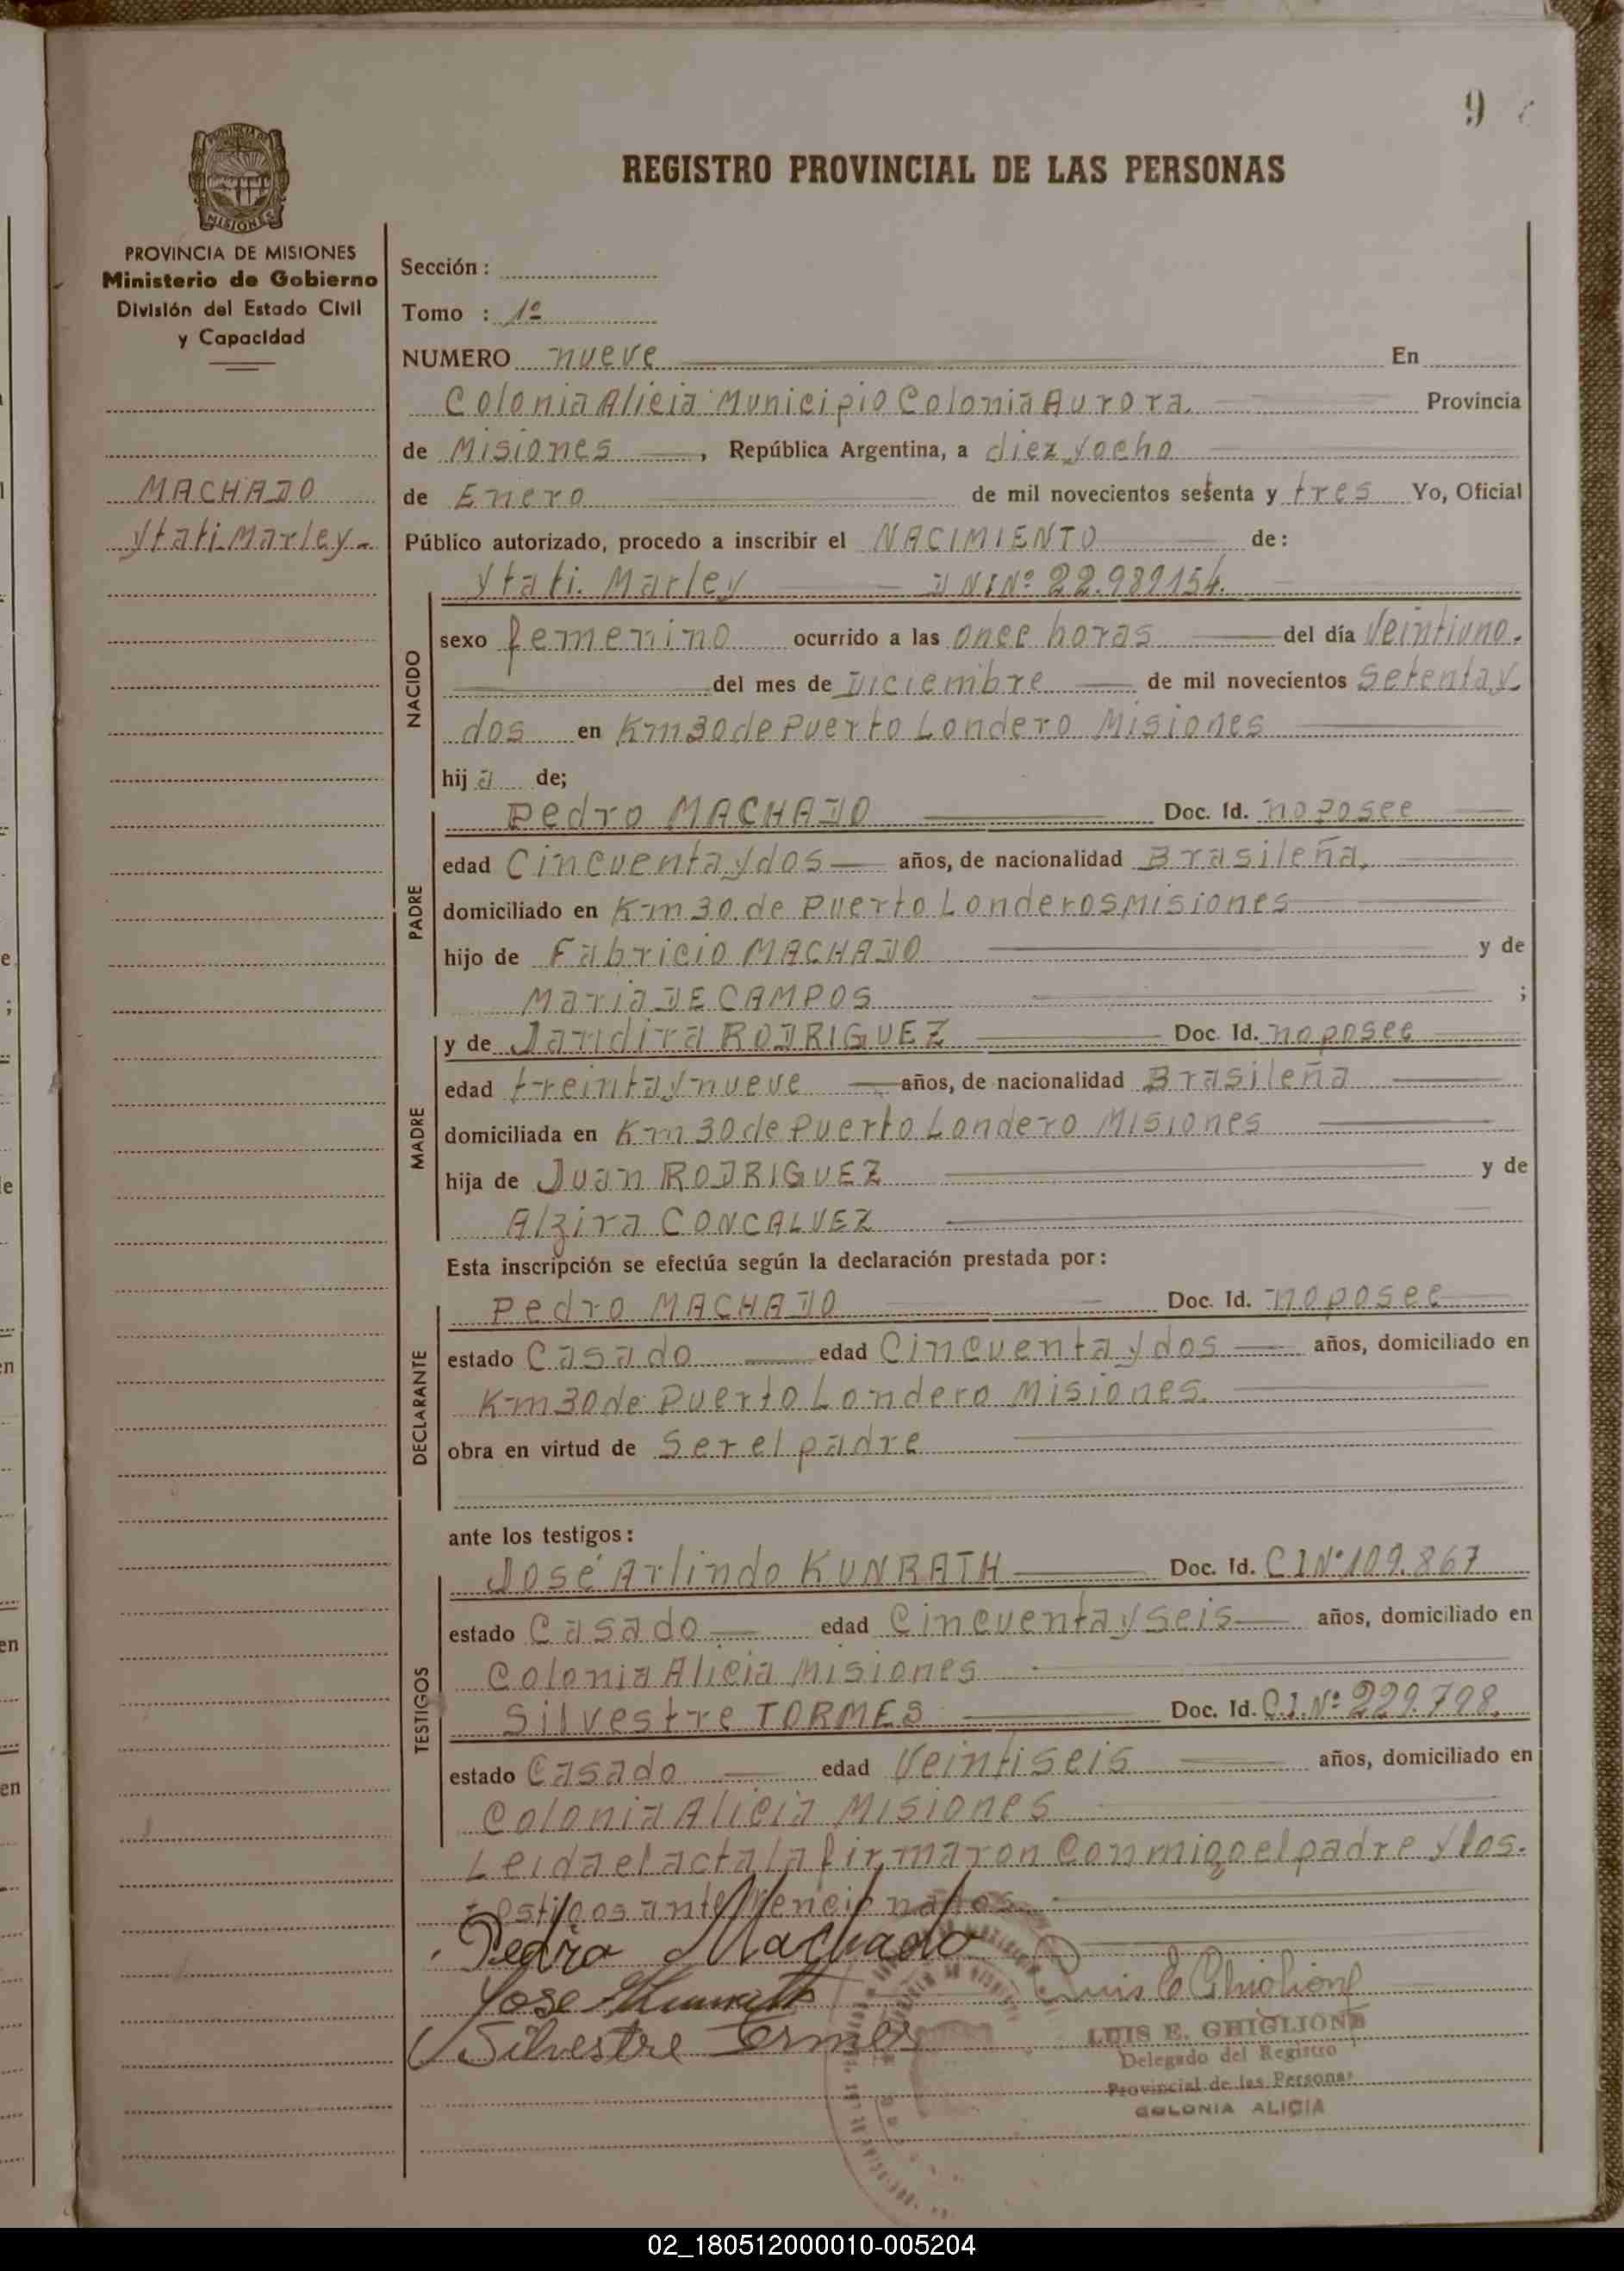 9
REGISTRO PROVINCIAL DE LAS PERSONAS
MISIONES
PROVINCIA DE MISIONES
Ministerio de Gobierno
División del Estado Civil
y Capacidad
MACHADO
Ytati Marley-
Sección :
Tomo : 1º
NUMERO nueve En
Colonia Alicia Municipio Colonia Aurora. Provincia
de Misiones, República Argentina, a diez y ocho
de Enero de mil novecientos setenta y tres Yo, Oficial
Público autorizado, procedo a inscribir el NACIMIENTO de :
NACIDO
Ytati. Marley DNI Nº 22.989154.
sexo femenino ocurrido a las once horas del día Veintiuno.
del mes de Diciembre de mil novecientos Setenta y
dos en Km 30 de Puerto Londero Misiones
hij a de;
PADRE
Pedro MACHADO Doc. Id. no posee
edad Cincuenta y dos años, de nacionalidad Brasileña,
domiciliado en Km 30. de Puerto Londeros Misiones
hijo de Fabricio MACHADO y de
Maria DE CAMPOS ;
MADRE
y de Jandira RODRIGUEZ Doc. Id. no posee
edad treinta y nueve años, de nacionalidad Brasileña
domiciliada en Km 30 de Puerto Londero Misiones
hija de Juan RODRIGUEZ y de
Alzira CONCALVEZ
Esta inscripción se efectúa según la declaración prestada por :
DECLARANTE
Pedro MACHADO Doc. Id. no posee
estado Casado edad Cincuenta y dos años, domiciliado en
Km 30 de Puerto Londero Misiones.
obra en virtud de Ser el padre
ante los testigos :
TESTIGOS
José Arlindo KUNRATH Doc. Id. C I Nº 109.867
estado Casado edad Cincuenta y seis años, domiciliado en
Colonia Alicia Misiones
Silvestre TORMES Doc. Id. C.I. Nº 229.798.
estado Casado edad Veintiseis años, domiciliado en
Colonia Alicia Misiones
Leida el acta la firmaron Conmigo el padre y los.
testigos antemencionados.
Pedro Machado
Jose A Kunrath
Luis E Ghiglione
Silvestre Tormes
LUIS E. GHIGLIONE
Delegado del Registro
Provincial de las Personas
COLONIA ALICIA
02_180512000010-005204